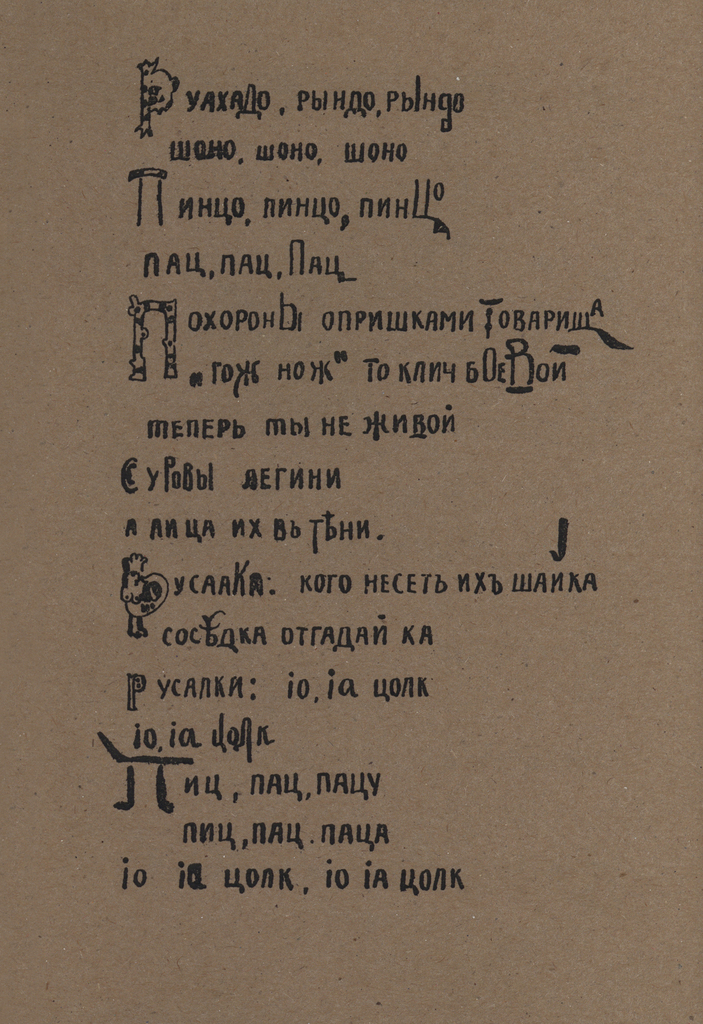 Руахадо, рындо, рындо
шоно, шоно, шоно
Пинцо, пинцо, пинцо
пац, пац, пац
Похороны опришками товарища
„гож нож" то клич боевой
теперь ты не живой
Суровы легини
а лица их вь тѣни.
Русалка: кого несеть ихъ шайка
сосѣдка отгадай ка
Русалки: іо, іа цолк
іо, іа цолк
Пиц, пац, пацу
пиц, пац. паца
іо іа цолк, іо іа цолк